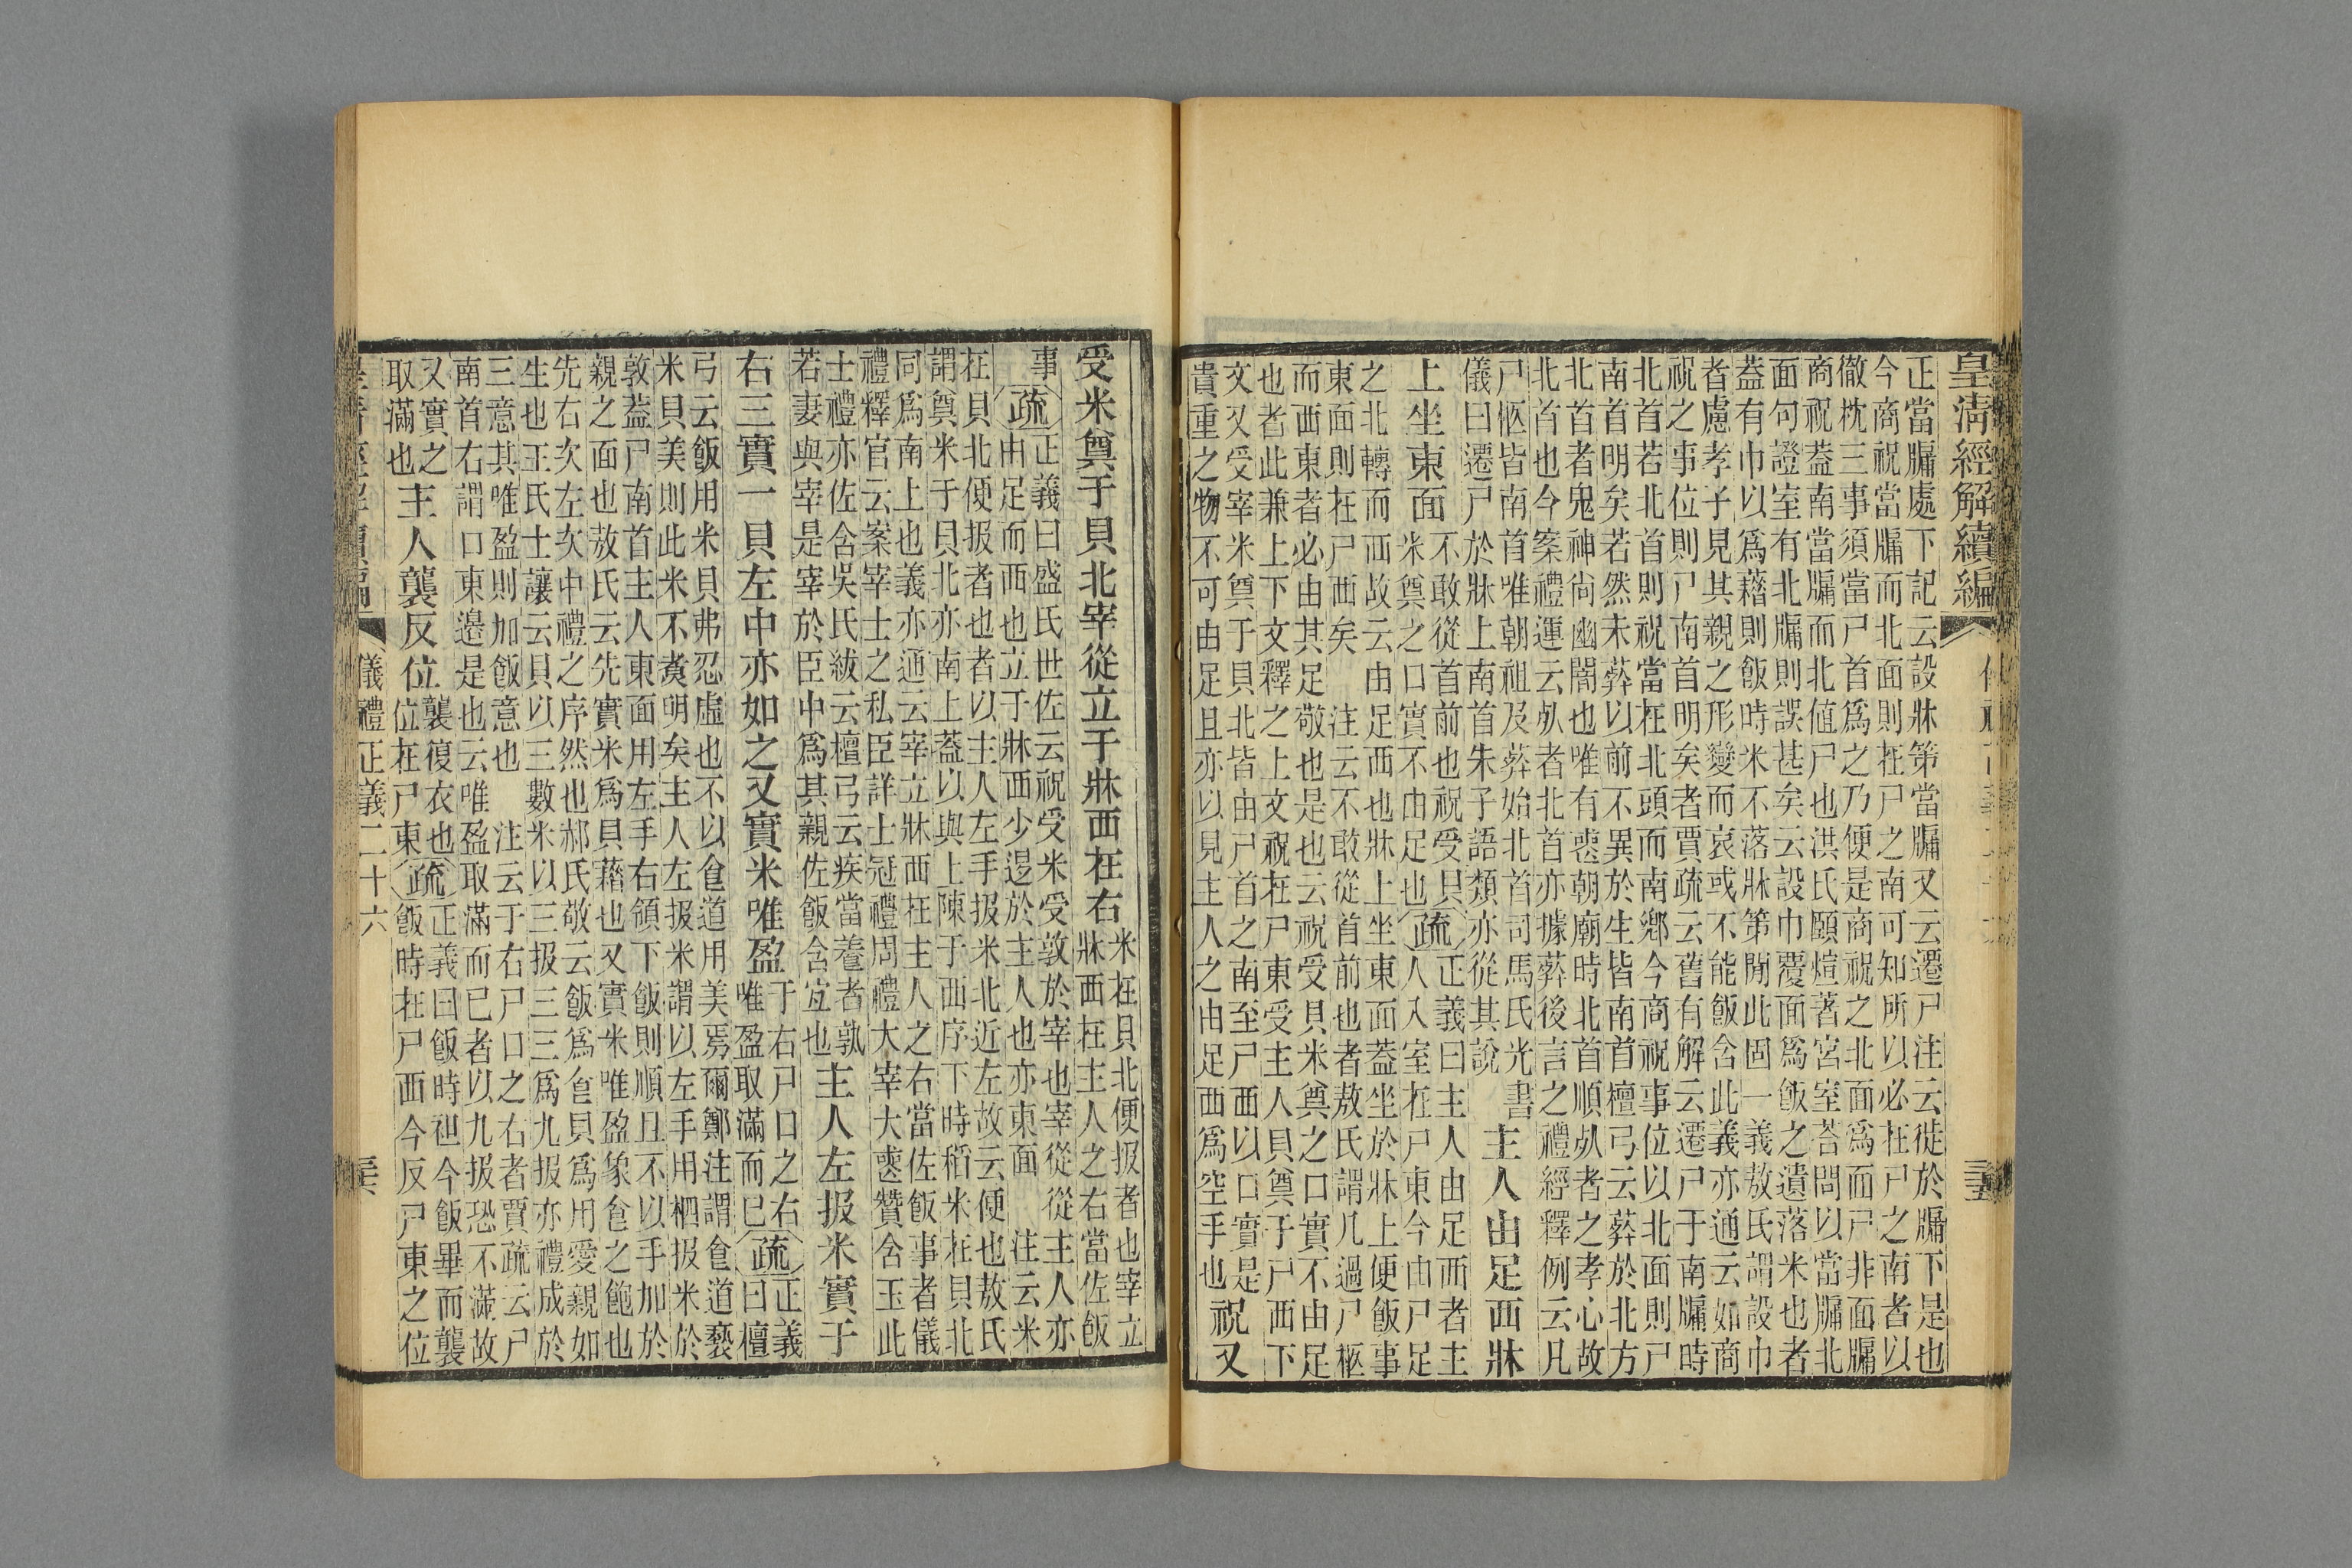 皇清經解續編
正當牖處下記云設牀第當牖又云遷尸注云徙於牖下是也
今商祝當牖而北面則在尸之南可知所以必在尸之南者以
徹枕三事須當尸首爲之乃便是商祝之北面爲而尸非面牖
商祝蓋南當牖而北值尸也洪氏頤煊著宮室荅問以當牖北
面句證室有北牖則誤甚矣云設巾覆面爲飯之遺落米也者
蓋有巾以爲藉則飯時米不落牀第閒此固一義敖氏謂設巾
者慮孝子見其親之形變而哀或不能飯含此義亦通云如商
祝之事位則尸南首明矣者賈疏云舊有解云遷尸于南牖時
北首若北首則祝當在北頭而南鄉今商祝事位以北面則尸
南首明矣若然未葬以前不異於生皆南首檀弓云葬於北方
北首者鬼神尚幽闇也唯有喪朝廟時北首順死者之孝心故
北首也今案禮運云死者北首亦據葬後言之禮經釋例云凡
尸柩皆南首唯朝祖及葬始北首司馬氏光書
儀曰遷尸於牀上南首朱子語類亦從其說
主人由足西牀
上坐東面
不敢從首前也祝受貝
米奠之口實不由足也
疏
正義曰主人由足西者主
人入室在尸東今由尸足
之北轉而西故云由足西也牀上坐東面蓋坐於牀上便飯事
東面則在尸西矣 注云不敢從首前也者敖氏謂几過尸柩
而西東者必由其足敬也是也云祝受貝米奠之口實不由足
也者此兼上下文釋之上文祝在尸東受主人貝奠于尸西下
文又受宰米奠于貝北皆由尸首之南至尸西以口實是
貴重之物不可由足且亦以見主人之由足西爲空手也
祝又
受米奠于貝北宰從立于牀西在右
米在貝北便扱者也宰立
牀西在主人之右當佐飯
事
疏
正義曰盛氏世佐云祝受米受敦於宰也宰從從主人亦
由足而西也立于牀西少邊於主人也亦東面 注云米
在貝北便扱者也者以主人左手扱米北近左故云便也敖氏
謂奠米于貝北亦南上蓋以與上陳于西序下時稻米在貝北
同爲南上也義亦通云宰立牀西在主人之右當佐飯事者儀
禮釋官云案宰士之私臣詳士冠禮周禮大宰大喪贊含玉此
士禮亦佐含吳氏紱云檀弓云疾當養者孰
若妻與宰是宰於臣中爲其親佐飯含宜也
主人左扱米實于
右三實一貝左中亦如之又實米唯盈
于右尸口之右
唯盈取滿而已
疏
正義
曰檀
弓云飯用米貝弗忍虛也不以食道用美焉爾鄭注謂食道褻
米貝美則此米不煑明矣主人左扱米謂以左手用柶扱米於
敦蓋尸南首主人東面用左手右領下飯則順且不以手加於
親之面也敖氏云先實米爲貝藉也又實米唯盈象食之飽也
先右次左次中禮之序然也郝氏敬云飯爲食貝爲用愛親如
生也王氏士讓云貝以三數米以三扱三三爲九扱亦禮成於
三意其唯盈則加飯意也 注云于右尸口之右者賈疏云尸
南首右謂口東邊是也云唯盈取滿而已者以九扱恐不滿故
又實之
取滿也
主人襲反位
襲復衣也
位在尸東
疏
正義曰飯時袒今飯畢而襲
飯時在尸西今反尸東之位
儀禮正義二十六